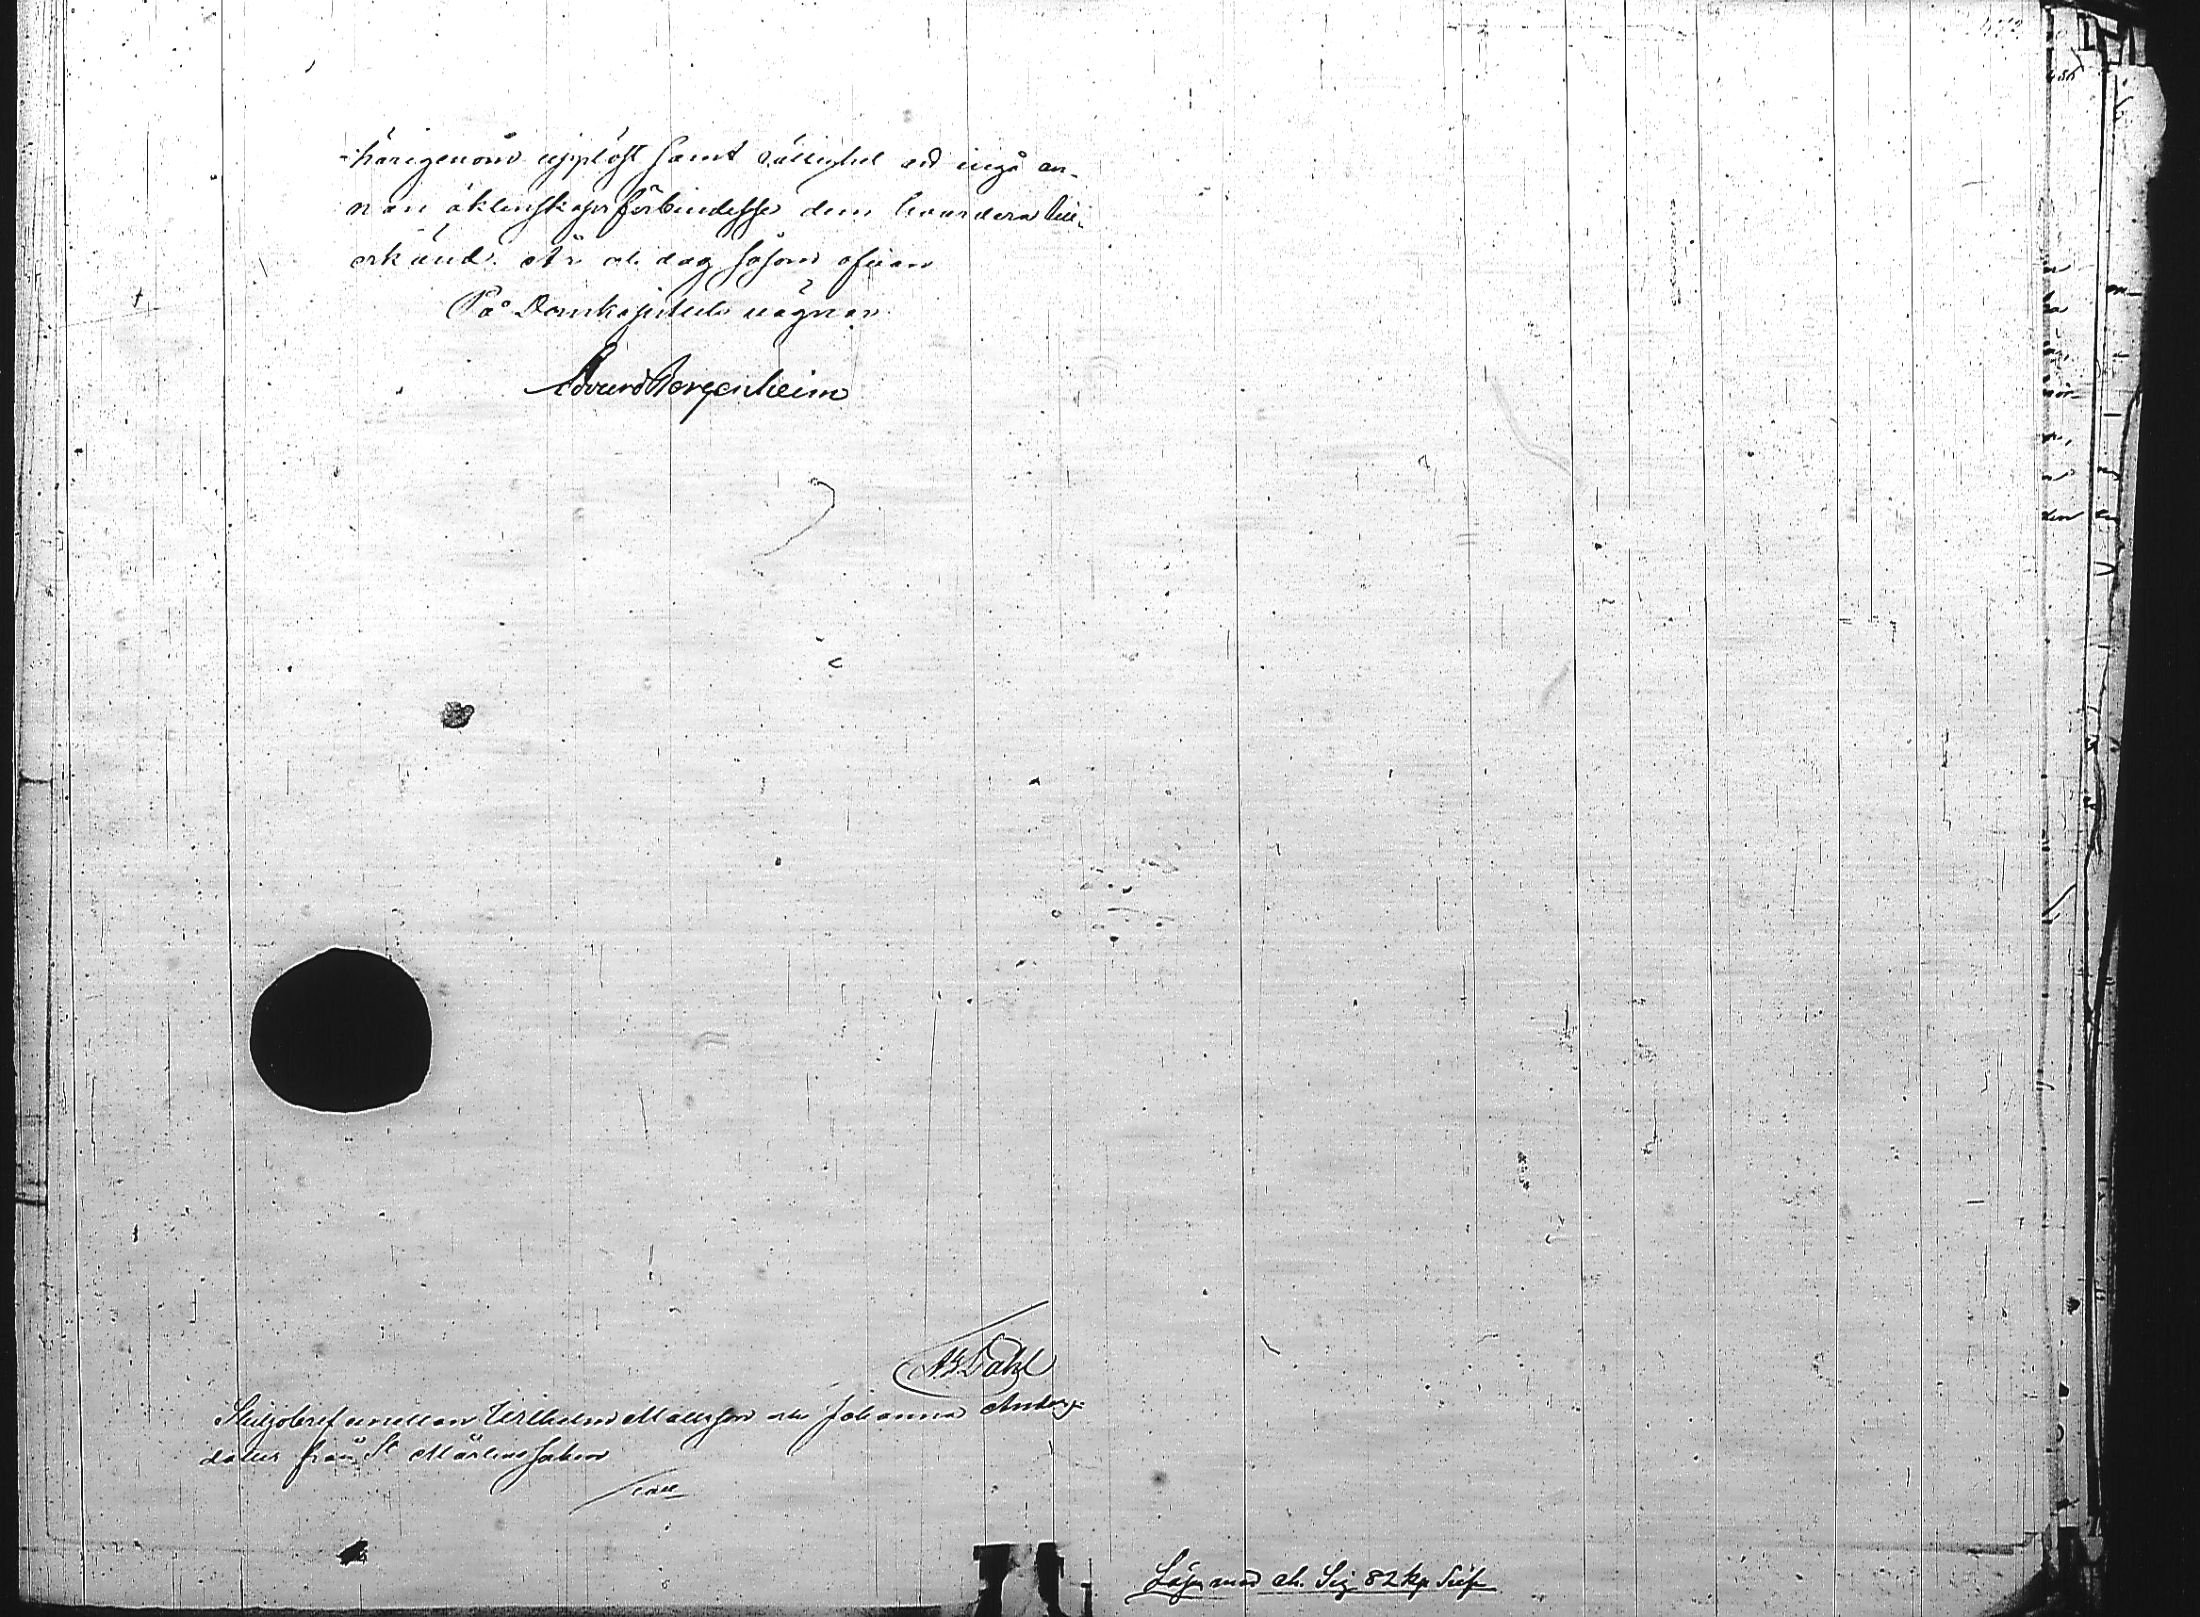 härigenom upplöst samt rättighet att ingå an-
nan äktenskapsförbindelse dem hvardera till-
erkänd. År och dag såsom ofvan
På Domkapitlets vägnar
Edvard Bergenheim
Dahl
Skiljobref emellan Wilhelm Mattsson och Johanna Anders-
dotter från St Mårtens socken
Lösen med ch. Sig. 82 kp Silf